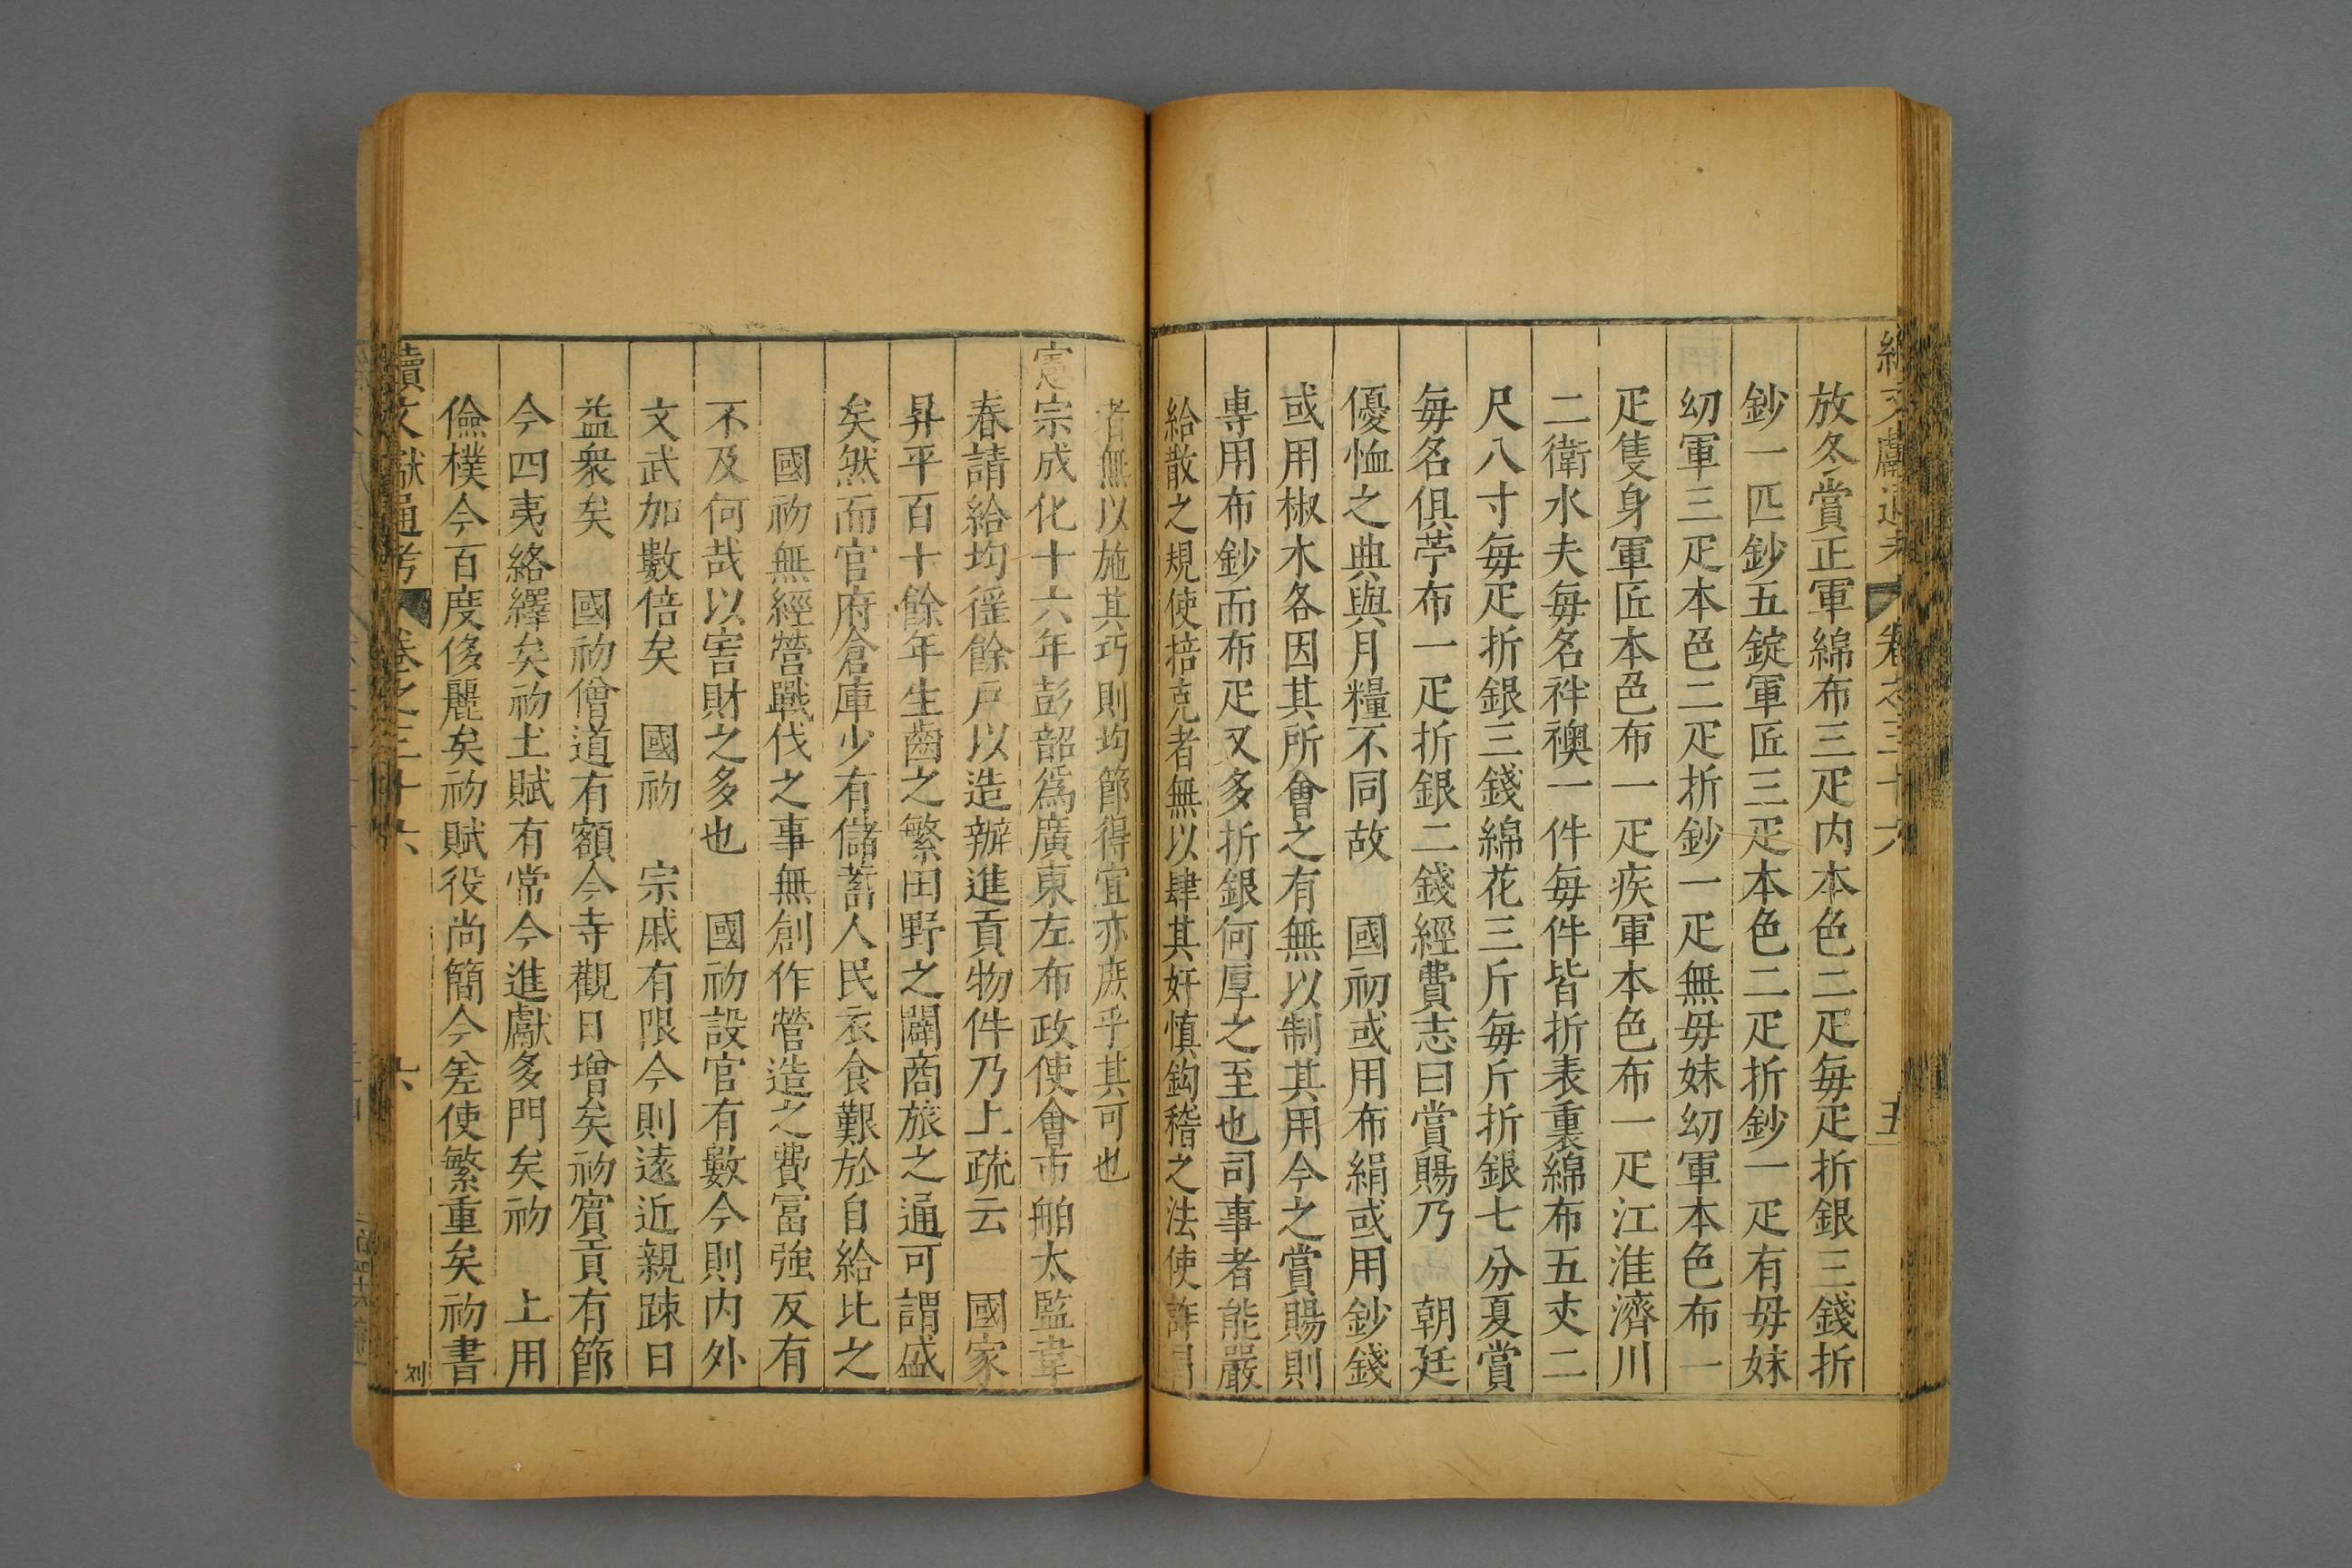 續文獻通考 卷之三十六 五
放冬賞正軍綿布三疋内本色二疋每疋折銀三錢折
鈔一匹鈔五錠軍匠三疋本色二疋折鈔一疋有母妹
幼軍三疋本色二疋折鈔一疋無母妹幼軍本色布一
疋隻身軍匠本色布一疋疾軍本色布一疋江淮濟川
二衛水夫每名袢襖一件每件皆折表裏綿布五丈二
尺八寸每疋折銀三錢綿花三斤每斤折銀七分夏賞
每名俱苧布一疋折銀二錢經費志曰賞賜乃 朝廷
優恤之典與月糧不同故 國初或用布絹或用鈔錢
或用椒木各因其所會之有無以制其用今之賞賜則
專用布鈔而布疋又多折銀何厚之至也司事者能嚴
給散之規使掊克者無以肆其奸慎鈎稽之法使詐冒
者無以施其巧則均節得宜亦庶乎其可也
憲宗成化十六年彭韶爲廣東左布政使會市舶太監韋
春請給均徭餘戸以造辦進貢物件乃上疏云 國家
昇平百十餘年生齒之繁田野之闢商旅之通可謂盛
矣然而官府倉庫少有儲蓄人民衣食艱於自給比之
國初無經營戰伐之事無創作營造之費冨強反有
不及何哉以害財之多也 國初設官有數今則内外
文武加數倍矣 國初 宗戚有限今則遠近親踈日
益衆矣 國初僧道有額今寺觀日增矣初賔貢有節
今四夷絡繹矣初土賦有常今進獻多門矣初 上用
儉樸今百度侈麗矣初賦役尚簡今差使繁重矣初書
續文獻通考 卷之三十六 六